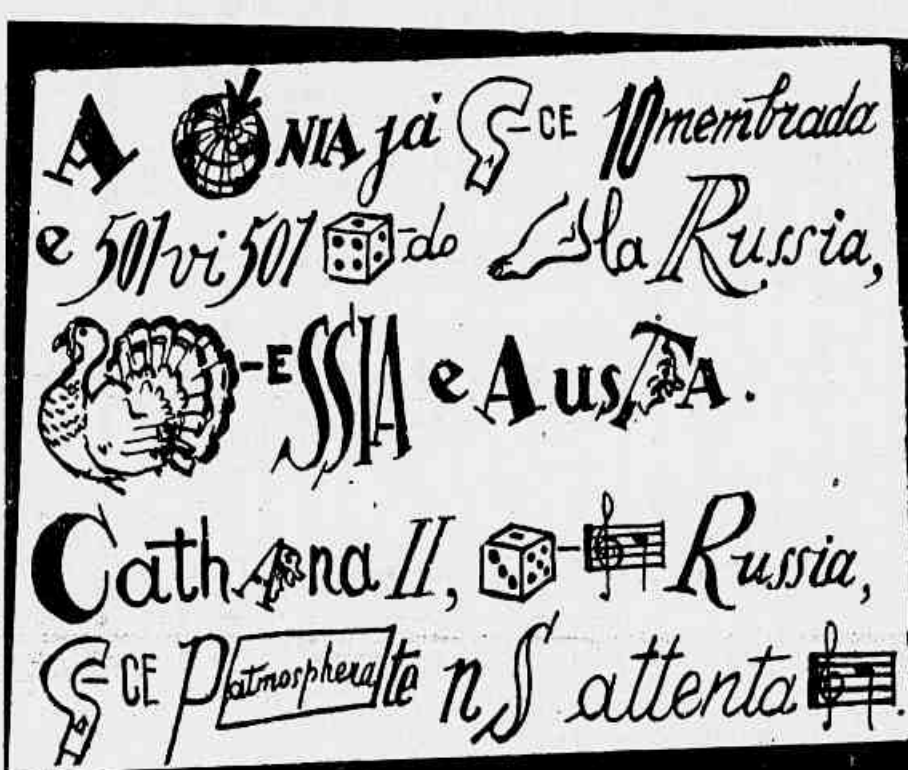 A NIA já -CE 10membrada
e 501vi501 -do la Russia,
-ESSIA e AusTA.
Cathna II, - Russia,
-CE Patmospherate nS attenta.